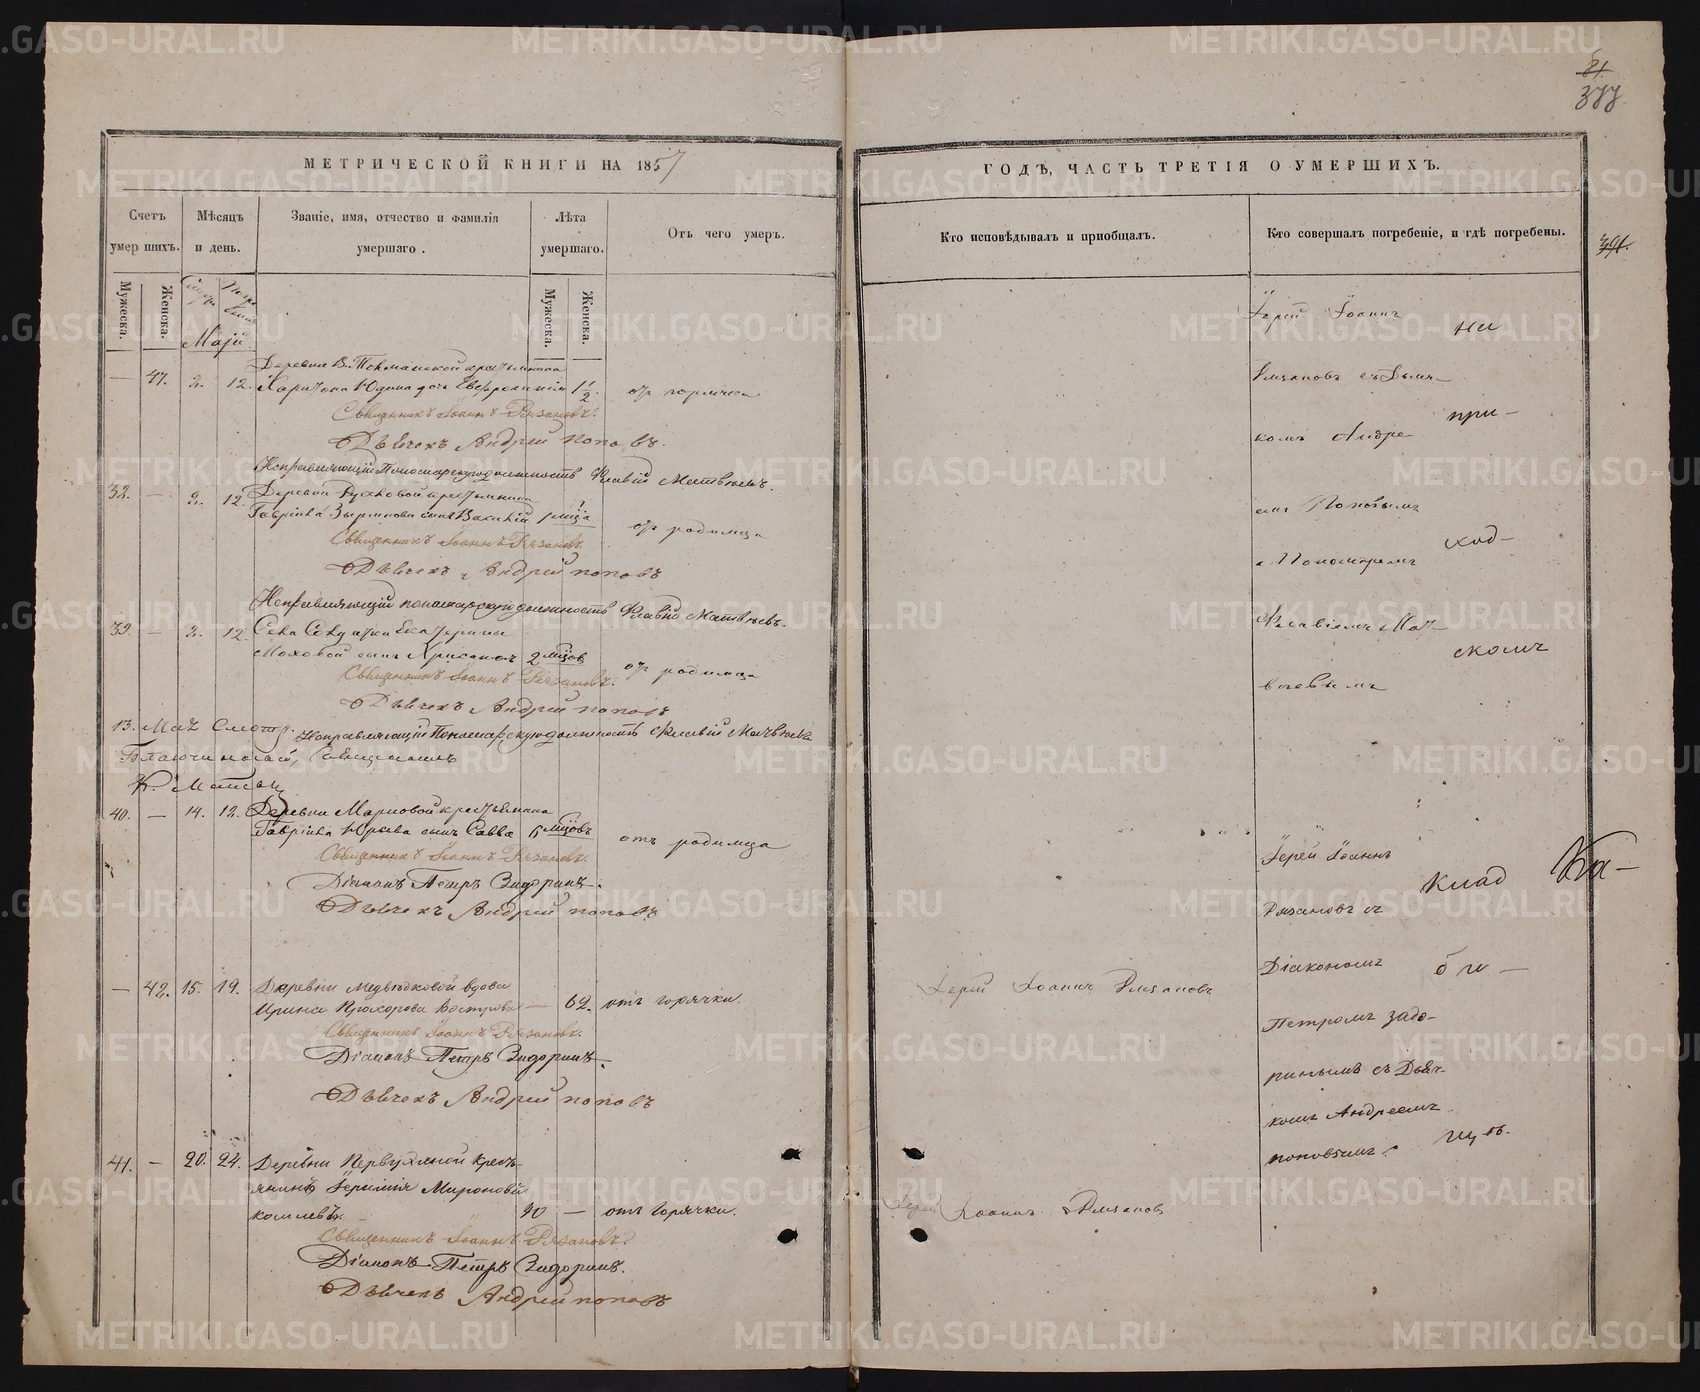 81.
377
МЕТРИЧЕСКОЙ КНИГИ НА 1857
ГОДѢ, ЧАСТЬ ТРЕТІЯ О УМЕРШИХЪ.
Счетъ умер шихъ.
Мѣсяцъ и день.
Званіе, имя, отчество и фамилія умершаго.
Лѣта умершаго.
Отъ чего умеръ.
Кто исповѣдывалъ и пріобщалъ.
Кто совершалъ погребеніе, и гдѣ погребены.
391.
Мужеска.
Женска.
Мужеска.
Женска.
Маій
— 41. 2. 12.
Харитона Юдина дочь Евфросинія 1 1/2
отъ горячки
Священникъ Іоаннъ Рязановъ.
Дьячекъ Андрей Поповъ.
Исправляющій Пономарскую должность Флавій Матвѣевъ.
— 2. 12.
Деревни крестьянина
Гавріила Зырянова сынъ
отъ родимца
Священникъ Іоаннъ Рязановъ.
Дьячекъ Андрей Поповъ
Исправляющій пономарскую должность Флавій Матвѣевъ.
39. — 2. 12.
Села Солдатки Екатерины
Моховой сынъ 2 мѣсцов
отъ родимца
Священникъ Іоаннъ Рязановъ.
Дьячекъ Андрей Поповъ
Исправляющій Пономарскую должность Флавій Матвѣевъ
13. Маія Смотр.
Благочинный, Священникъ
40. — 14. 12. Деревни Марковой крестьянина
Гавріила Юрьева сынъ Савва 6 мѣсцовъ
отъ родимца
Священникъ Іоаннъ Рязановъ.
Діаконъ Петръ Задоринъ.
Дьячекъ Андрей Поповъ
— 42. 15. 19. Деревни Медвѣдковой вдова
Ирина Прохорова Вострова — 62. отъ горячки.
Священникъ Іоаннъ Рязановъ.
Діаконъ Петръ Задоринъ.
Дьячекъ Андрей Поповъ
41. — 20. 24. Деревни Первухиной кресть-
янинъ Іеремія Мироновъ
Комлевъ. 40 — отъ горячки.
Священникъ Іоаннъ Рязановъ.
Діаконъ Петръ Задоринъ.
Дьячекъ Андрей Поповъ
Іерей Іоаннъ Рязановъ
Іерей Іоаннъ Рязановъ
Іерей Іоаннъ
на
Рязановъ съ Дьяч-
при-
комъ Андре-
емъ Поповымъ
ход-
и Пономаремъ
Флавіемъ Мат-
скомъ
вѣевымъ
Іерей Іоаннъ
клад
Рязановъ съ
Діакономъ
би-
Петромъ Задо-
ринымъ съ Дьяч-
комъ Андреемъ
Поповымъ.
щѣ.
METRIKI.GASO-URAL.RU